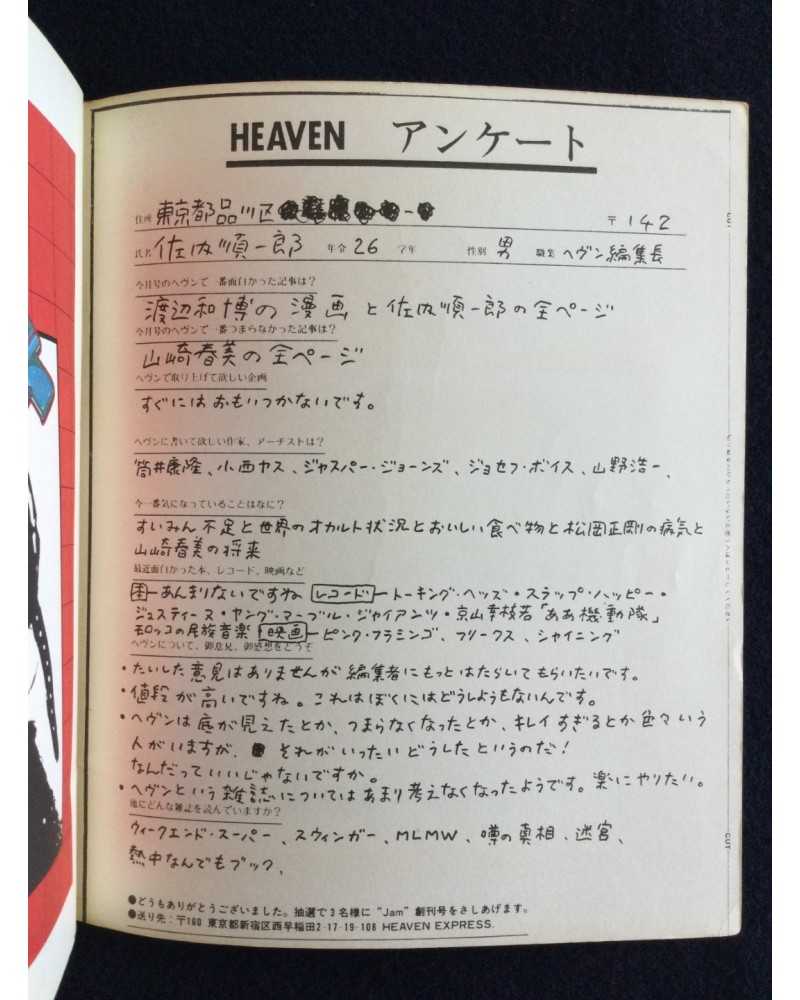 HEAVEN アンケート
住所 東京都品川区 〒142
氏名 佐内順一郎 年令 26 学年 性別 男 職業 ヘヴン編集長
今月号のヘヴンで一番面白かった記事は?
渡辺和博の漫画と佐内順一郎の全ページ
今月号のヘヴンで一番つまらなかった記事は?
山崎春美の全ページ
ヘヴンで取り上げて欲しい企画
すぐにはおもいつかないです。
ヘヴンに書いて欲しい作家、アーチストは?
筒井康隆、小西ヤス、ジャスパー・ジョーンズ、ジョセフ・ボイス、山野浩一、
今一番気になっていることはなに?
すいみん不足と世界のオカルト状況とおいしい食べ物と松岡正剛の病気と
山崎春美の将来
最近面白かった本、レコード、映画など
本―あんまりないですね レコード―トーキング・ヘッズ・スラップ・ハッピー・
ジュスティーヌ・ヤング・マーブル・ジャイアンツ・京山幸枝若「ああ機動隊」
モロッコの民族音楽 映画―ピンク・フラミンゴ、フリークス、シャイニング
ヘヴンについて、御意見、御感想をどうぞ
・たいした意見はありませんが編集者にもっとはたらいてもらいたいです。
・値段が高いですね。これはぼくにはどうしようもないんです。
・ヘヴンは底が見えたとか、つまらなくなったとか、キレイすぎるとか色々いう
人がいますが、それがいったいどうしたというのだ!
なんだっていいじゃないですか。
・ヘヴンという雑誌についてはあまり考えなくなったようです。楽にやりたい。
他にどんな雑誌を読んでいますか?
ウィークエンド・スーパー、スウィンガー、MLMW、噂の真相、迷宮、
熱中なんでもブック、
●どうもありがとうございました。抽選で3名様に“Jam”創刊号をさしあげます。
●送り先:〒160 東京都新宿区西早稲田2-17-19-106 HEAVEN EXPRESS.
CUT
CUT